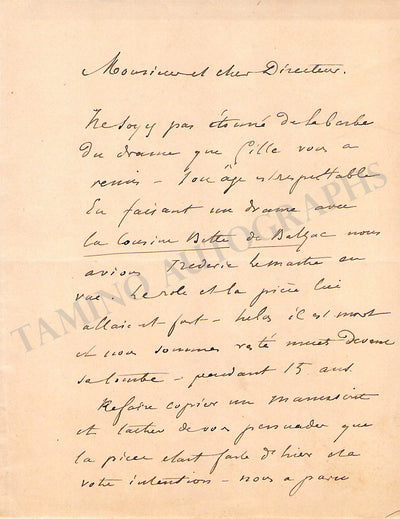 Monsieur et cher Directeur.
Ne soyez pas étonné de la barbe
du drame que Gille vous a
remis – Son âge est respectable
En faisant un drame avec
la Cousine Bette de Balzac nous
avions Frederic Lemaitre en
vue le role et la pièce lui
allait et fort – helas il est mort
et nous sommes resté muets devant
sa tombe – pendant 15 ans.
Refaire copier un manuscrit
et tacher de vous persuader que
la piece etait faite d'hier et a
votre intention – nous a paru
TAMINO AUTOGRAPHS